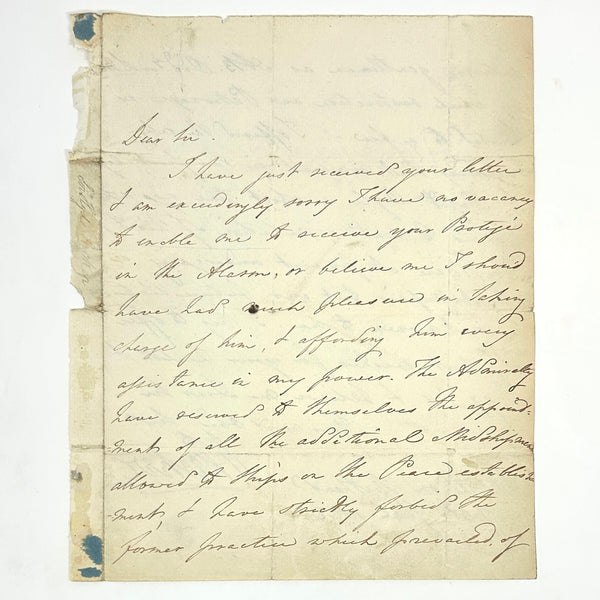 Dear Sir.
I have just received your letter
I am exceedingly sorry I have no vacancy
to enable me to receive your Protegé
in the Alarm, or believe me I should
have had much pleasure in taking
charge of him, & affording him every
assistance in my power. The Admiralty
have reserved to themselves the appoint-
-ment of all the additional Midshipmen
allowed to ships on the Peace establish
-ment, & have strictly forbid the
former practice which prevailed, of